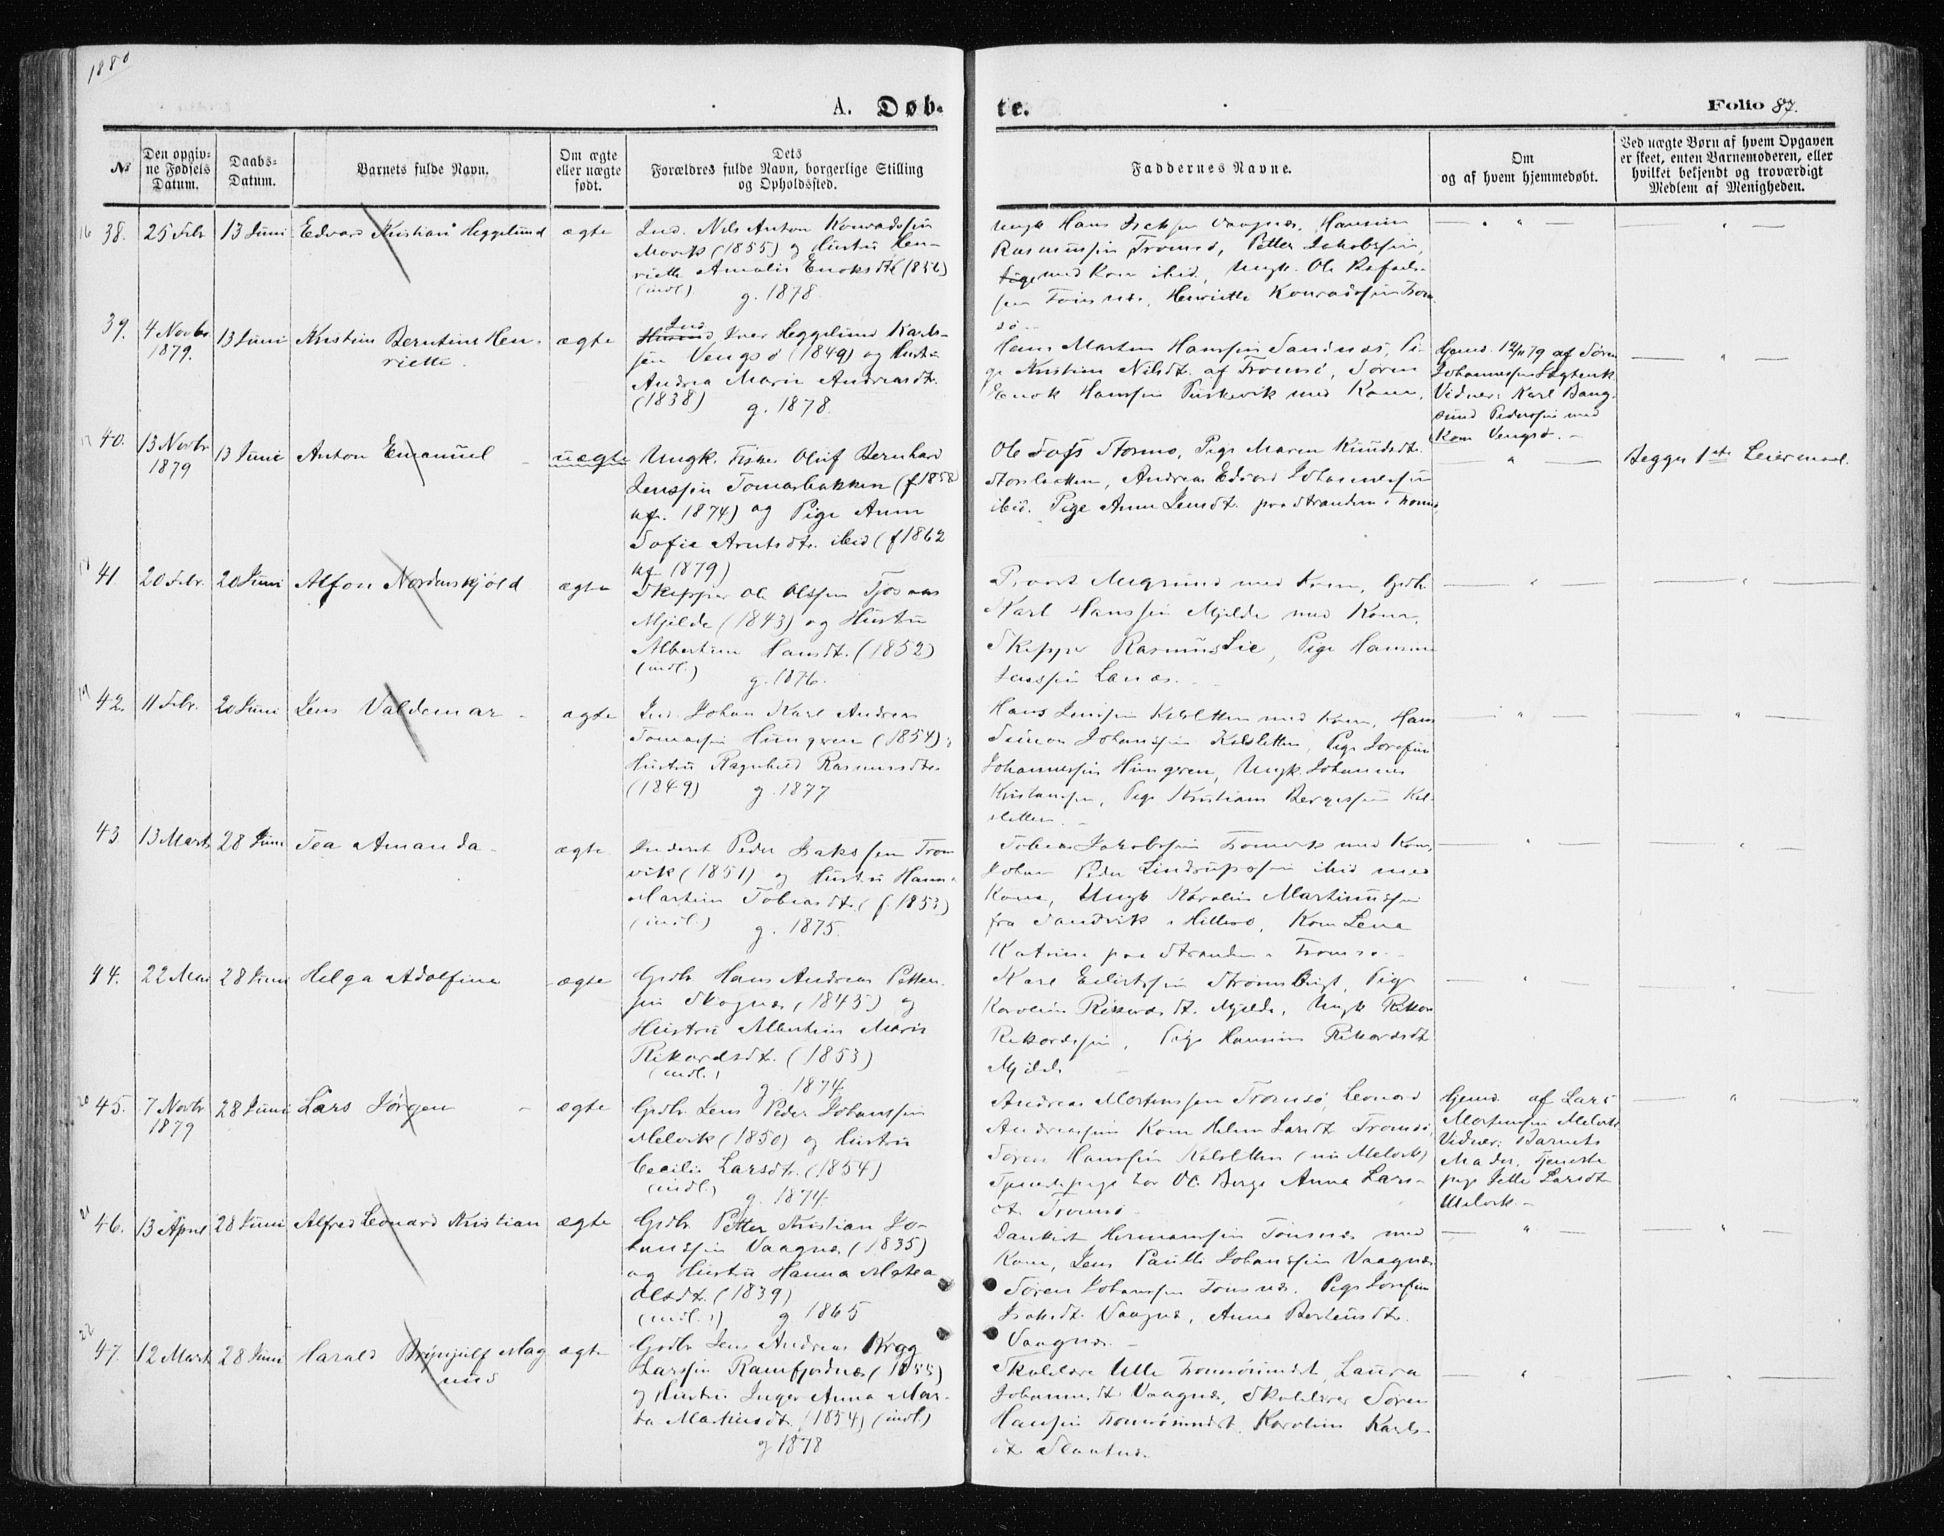 1880
A. Døb-
te.
Folio 87.
№
Den opgiv-
ne Fødsels
Datum.
Daabs-
Datum.
Barnets fulde Navn.
Om ægte
eller uægte
født.
Dets
Forældres fulde Navn, borgerlige Stilling
og Opholdssted.
Faddernes Navne.
Om
og af hvem hjemmedøbt.
Ved uægte Børn af hvem Opgaven
er skeet, enten Barnemoderen, eller
hvilket bekjendt og troværdigt
Medlem af Menigheden.
16 38. 25 Febr 13 Juni Edvard Kristian Heggelund ægte
Ind. Nils Anton Konradssen
Movik (1855) og Hustru Hen-
riette Amalie Enoksdt (1856)
(indl.) g. 1878.
Ungk Hans Isaksen Vaagnæs, Hansine
Rasmussen Tromsø, Petter Jakobssen,
med Kone ibid, Ungk. Ole Rafael-
sen Tønsnæs, Henriette Konradssen Trom
sø
39. 4 Novbr 13 Juni Kristine Berntine Hen-
1879. riette.
ægte
Ind
Iver Heggelund Karls-
sen Vengsø (1849) og Hustru
Andrea Marie Andreasdt.
(1838) g. 1878.
Hans Martin Hanssen Sandnæs, Pi-
ge Kristine Nilsdt. af Tromsø, Søren
Enok Hanssen med Kone.
Hjemd. 12/11 79 af Søren
Johannessen
Vidner: Karl Bang-
sund Pederssen med
Kone Vengsø. -
17 40. 13 Novbr 13 Juni Anton Emanuel - uægte
1879
Ungk. Fisker Oluf Bernhard
Jenssen Tomasbakken (f 1858
kf. 1874) og Pige Anne
Sofie Arntsdt. ibid (f 1862
kf 1879)
Ole Stormo, Pige Maren Knudsdt.
Storsletten, Andreas Edvard Johannessen
ibid. Pige Anne Jensdt. paa Stranden i Troms
Begges 1ste Leiermaal.
18 41. 20 Febr. 20 Juni Alfon Nordenskjöld ægte
Skipper Ole Olssen
Mjelde (1843) og Hustru
Albertine Hansdt. (1852)
(indl.) g. 1876.
Provst med Kone, Gdbr
Karl Hanssen Mjelde med Kone,
Skipper Rasmus Lie, Pige Hansine
Jenssen Lanæs.
19 42. 11 Febr. 20 Juni Jens Valdemar - ægte
Ind. Johan Karl Andreas
Tomassen Hungeren (1854) og
Hustru Ragnhild Rasmusdt.
(1849) g. 1877
Hans Jenssen Kalsletten med Kone, Hans
Simon Johanssen Kalsletten, Pige Josefine
Johannessen Hungeren, Ungk. Johannes
Kristianssen, Pige Kristiane Bergessen Kal-
sletten. -
43 13 Marts 28 Juni Tea Amanda - ægte
Inderst Peder Isakssen Trom
vik (1851) og Hustru Hanna
Martine Tobiasdt. (f. 1853)
(indl.) g. 1875.
Tobias Jakobssen Tromvik med Kone
Johan Peder Lindrupssen ibid med
Kone, Ungk Karolius Martinussen
fra Sandvik i Hillesø, Kone Lena
Katrine paa Stranden i Tromsø.
44. 22 Mai 28 Juni Helga Adolfine ægte
Gdbr Hans Andreas Petter-
sen Skognæs (1845) og
Hustru Albertine Marie
Rikardsdt. (1853)
(indl.) g. 1874.
Karl Eilertssen Strømsligt, Pige
Karoline Rikardsdt. Mjelde, Ungk Rikar
Rikardssen, Pige Hansine Rikardsdt
Mjelde
20 45. 7 Novbr 28 Juni Lars Jørgen - ægte
1879
Gdbr. Jens Peder Johanssen
Melvik (1850) og Hustru
Cecilie Larsdt. (1854)
(indl.) g. 1874.
Andreas Mortenssen Tromsø, Leonard
Andreassen Kone Helene Larsdt Tromsø,
Søren Hanssen Kalsletten (nu Melvik)
Tjenestepige hos Ol. Berge Anna Lars-
dt Tromsø.
Hjemd. af Lars
Mortenssen Melvik
Vidner: Barnets
Mader, Tjeneste
pige Jette Larsdt
Melvik -
21 46. 13 April 28 Juni Alfred Leonard Kristian ægte
Gdbr. Petter Kristian Jo-
hanssen Vaagnæs (1835)
og Hustru Hanna Matea
Olsdt. (1839)
(indl.) g 1865
Dankert Hermanssen Tønsnæs med
Kone, Jens Paulle Johanssen Vaagnæs
Søren Johanssen Tønsnæs. Pige Josefine
Isaksdt. Vaagnæs, Anna Berteusdt.
Vaagnæs. -
22 47. 12 Marts 28 Juni Harald Brynjulf Mag ægte
nus
Gdbr Jens Andreas Krogg
Larssen Ramfjordnæs (1855)
og Hustru Inger Anna Mar-
ta Martinsdt. (1854) (indl)
g 1878
Skolelære Ulle Tromsøsundet, Laura
Johannesdt. Vaagnæs, Skolelærer Søren
Hansen Tromsøsundet, Karoline Karls-
dt Slaatnæs.